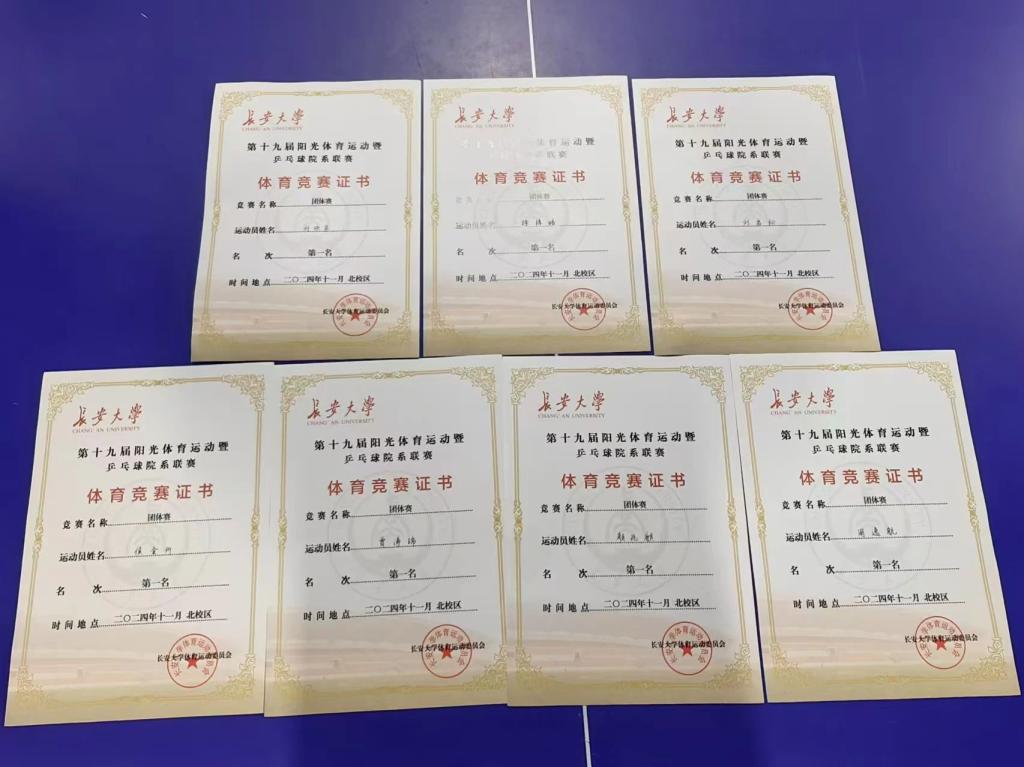 长安大学
CHANG'AN UNIVERSITY
第十九届阳光体育运动暨
乒乓球院系联赛
体育竞赛证书
竞赛名称 团体赛
运动员姓名
名 次 第一名
时间地点 二〇二四年十一月 北校区
长安大学体育运动委员会
长安大学
CHANG'AN UNIVERSITY
第十九届阳光体育运动暨
乒乓球院系联赛
体育竞赛证书
团体赛
运动员姓名
名 次 第一名
时间地点 二〇二四年十一月 北校区
长安大学体育运动委员会
长安大学
CHANG'AN UNIVERSITY
第十九届阳光体育运动暨
乒乓球院系联赛
体育竞赛证书
竞赛名称 团体赛
运动员姓名
名 次 第一名
时间地点 二〇二四年十一月 北校区
长安大学体育运动委员会
长安大学
CHANG'AN UNIVERSITY
第十九届阳光体育运动暨
乒乓球院系联赛
体育竞赛证书
竞赛名称 团体赛
运动员姓名
名 次 第一名
时间地点 二〇二四年十一月 北校区
长安大学体育运动委员会
长安大学
CHANG'AN UNIVERSITY
第十九届阳光体育运动暨
乒乓球院系联赛
体育竞赛证书
竞赛名称 团体赛
运动员姓名 曹涛瑞
名 次 第一名
时间地点 二〇二四年十一月 北校区
长安大学体育运动委员会
长安大学
CHANG'AN UNIVERSITY
第十九届阳光体育运动暨
乒乓球院系联赛
体育竞赛证书
竞赛名称 团体赛
运动员姓名
名 次 第一名
时间地点 二〇二四年十一月 北校区
长安大学体育运动委员会
长安大学
CHANG'AN UNIVERSITY
第十九届阳光体育运动暨
乒乓球院系联赛
体育竞赛证书
竞赛名称 团体赛
运动员姓名 周逸航
名 次 第一名
时间地点 二〇二四年十一月 北校区
长安大学体育运动委员会